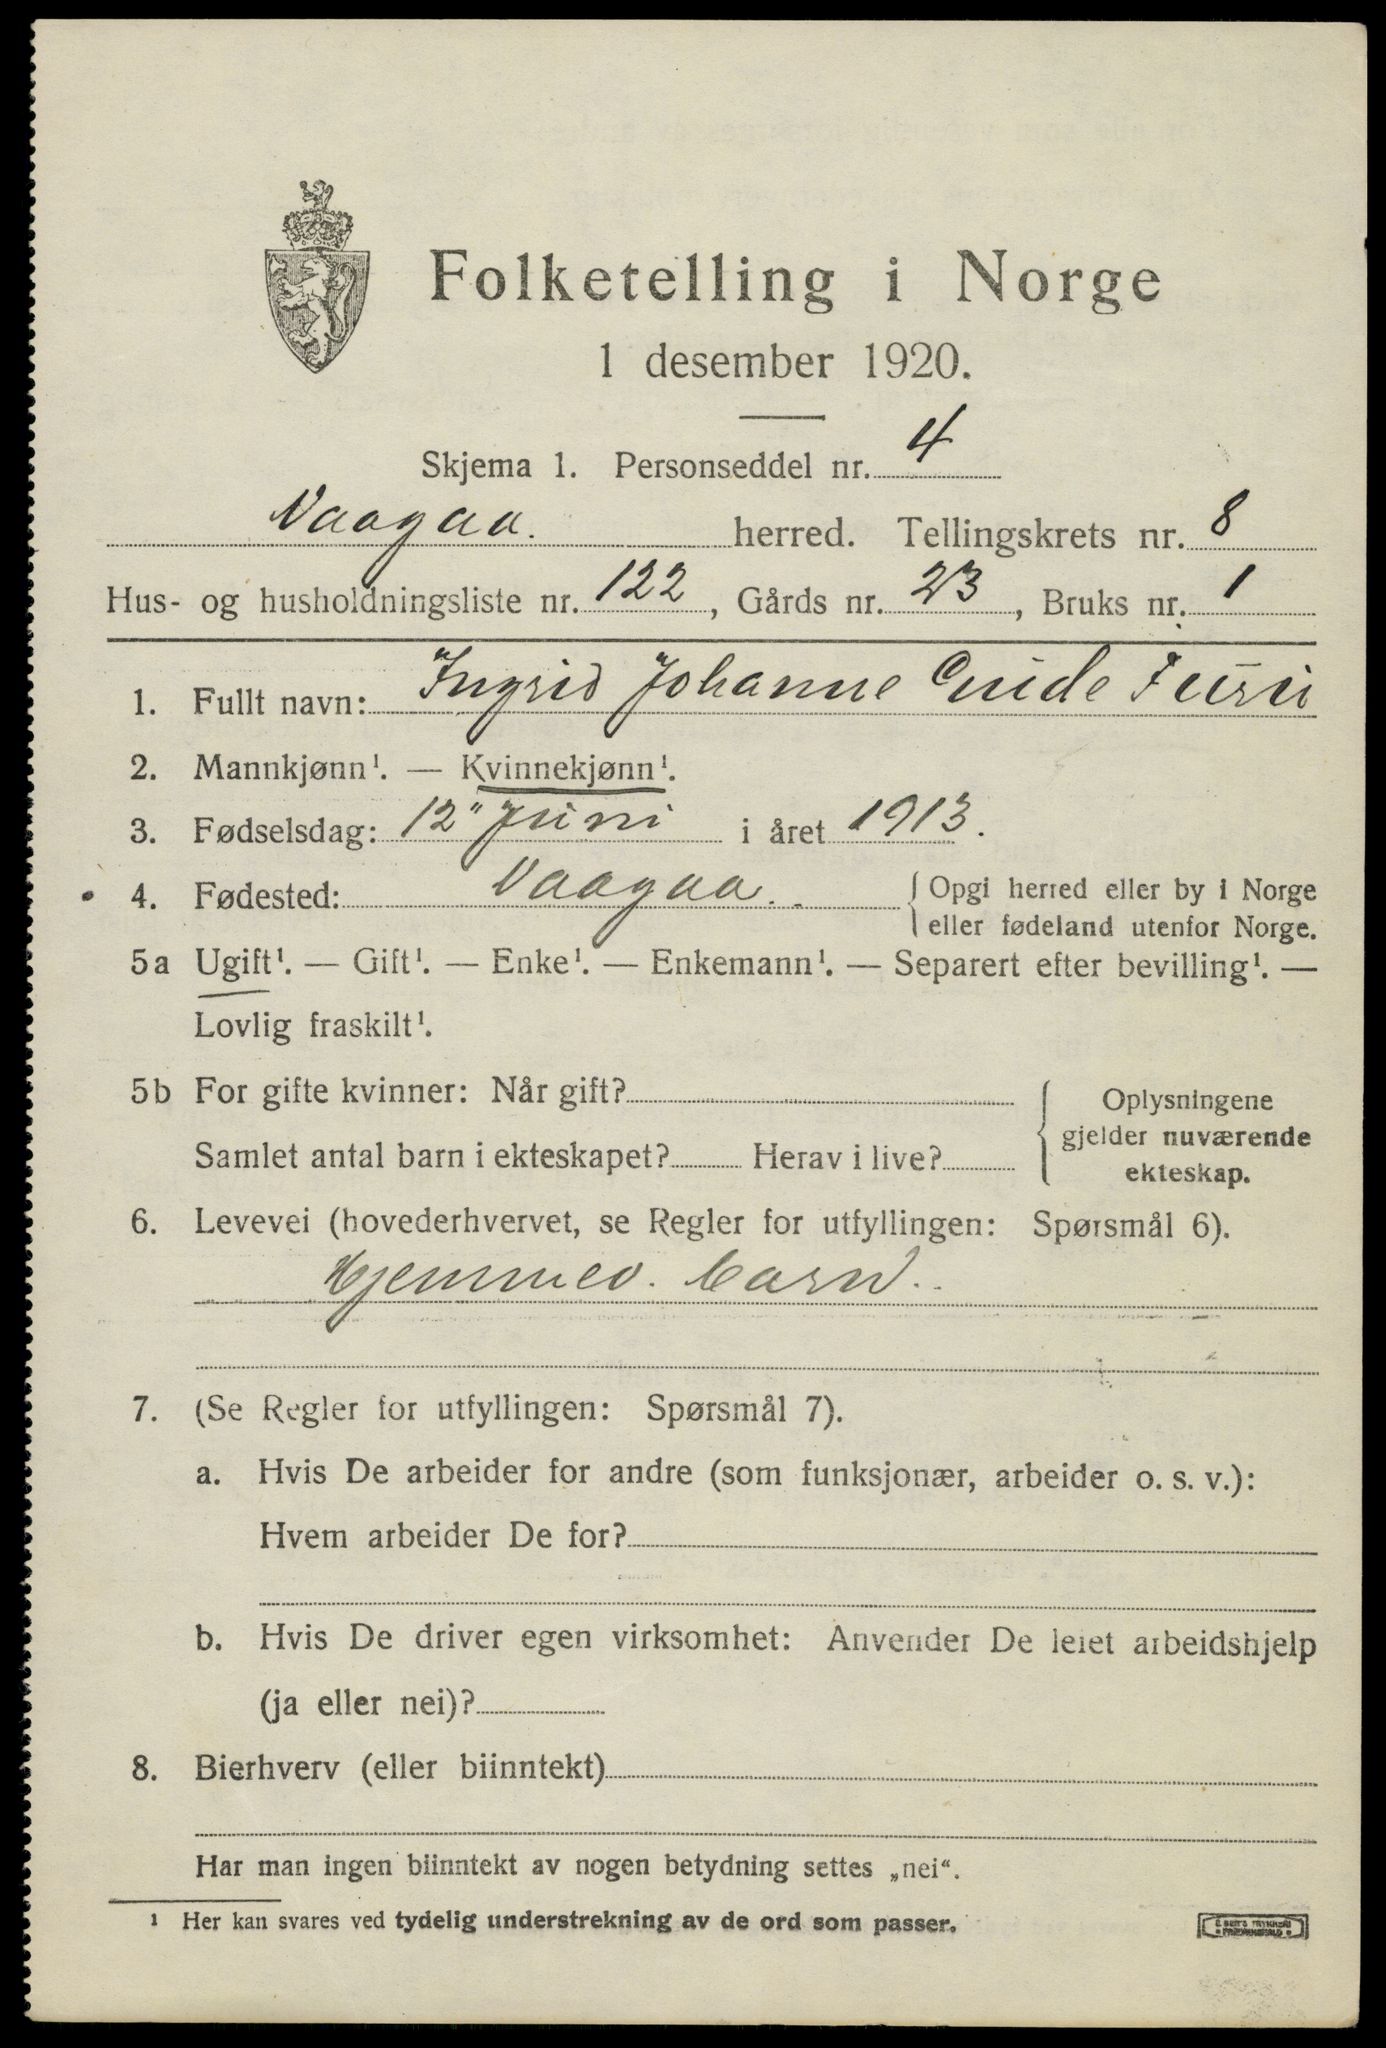 Folketelling i Norge
1 desember 1920.
Skjema 1. Personseddel nr. 4
Vaagaa. herred. Tellingskrets nr. 8
Hus- og husholdningsliste nr. 122, Gårds nr. 23, Bruks nr. 1
1. Fullt navn: Ingrid Johanne Furu
2. Mannkjønn¹. — Kvinnekjønn¹.
3. Fødselsdag: 12" Juni i året 1913.
4. Fødested: Vaagaa. { Opgi herred eller by i Norge
eller fødeland utenfor Norge.
5a Ugift¹. — Gift¹. — Enke¹. — Enkemann¹. — Separert efter bevilling¹. —
Lovlig fraskilt¹.
5b For gifte kvinner: Når gift?
Samlet antal barn i ekteskapet? Herav i live?
{ Oplysningene
gjelder nuværende
ekteskap.
6. Levevei (hovederhvervet, se Regler for utfyllingen: Spørsmål 6).
Hjemmev. barn.
7. (Se Regler for utfyllingen: Spørsmål 7).
a. Hvis De arbeider for andre (som funksjonær, arbeider o. s. v.):
Hvem arbeider De for?
b. Hvis De driver egen virksomhet: Anvender De leiet arbeidshjelp
(ja eller nei)?
8. Bierhverv (eller biinntekt)
Har man ingen biinntekt av nogen betydning settes „nei“.
¹ Her kan svares ved tydelig understrekning av de ord som passer.